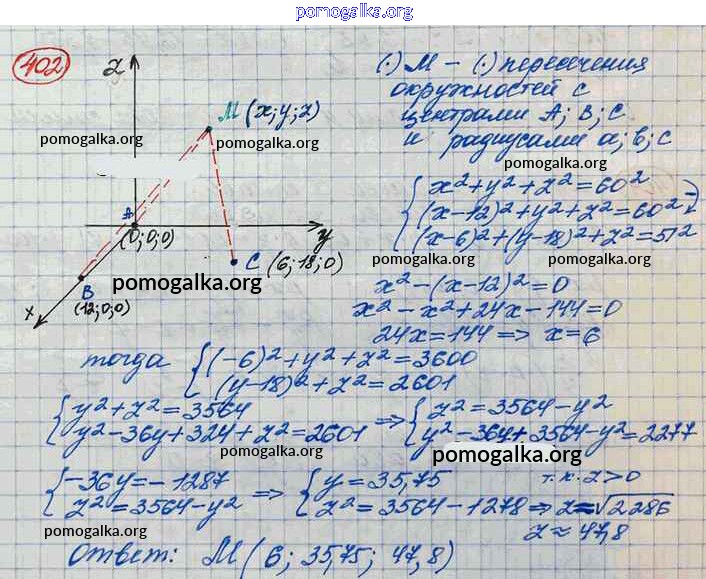 pomogalka.org
402
z
M (x; y; z)
pomogalka.org
pomogalka.org
A
(0; 0; 0)
y
C (6; 18; 0)
B
(12; 0; 0)
x
pomogalka.org
(·) M – (·) пересечения
окружностей с
центрами A; B; C
pomogalka.org
и радиусами a; b; c
pomogalka.org
x² + y² + z² = 60²
(x-12)² + y² + z² = 60²
(x-6)² + (y-18)² + z² = 51²
pomogalka.org
x² - (x-12)² = 0
x² - x² + 24x - 144 = 0
24x = 144 => x = 6
тогда { (-6)² + y² + z² = 3600
(y-18)² + z² = 2601
{ y² + z² = 3564
y² - 36y + 324 + z² = 2601
=> { z² = 3564 - y²
y² - 36y + 3564 - y² = 2277
pomogalka.org
pomogalka.org
{ -36y = -1287
z² = 3564 - y²
=> { y = 35,75 т.к. z > 0
z² = 3564 - 1278 => z = √2286
pomogalka.org
z ≈ 47,8
pomogalka.org
Ответ: M (6; 35,75; 47,8)